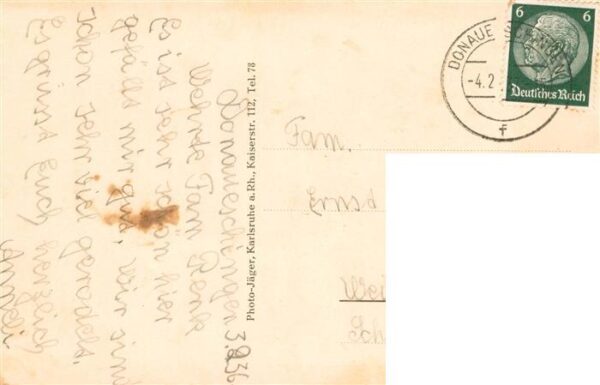 Donaueschingen 3.2.36
Werte Fam.
Es ist sehr schön hier
gefällt mir gut, wir sind
schon sehr viel gerodelt.
Es grüsst Euch herzlich
Photo-Jäger, Karlsruhe a. Rh., Kaiserstr. 112, Tel. 78
DONAUE
-4.2
f
6 6
Deutsches Reich
Fam.
Ernst
Wei
Sch